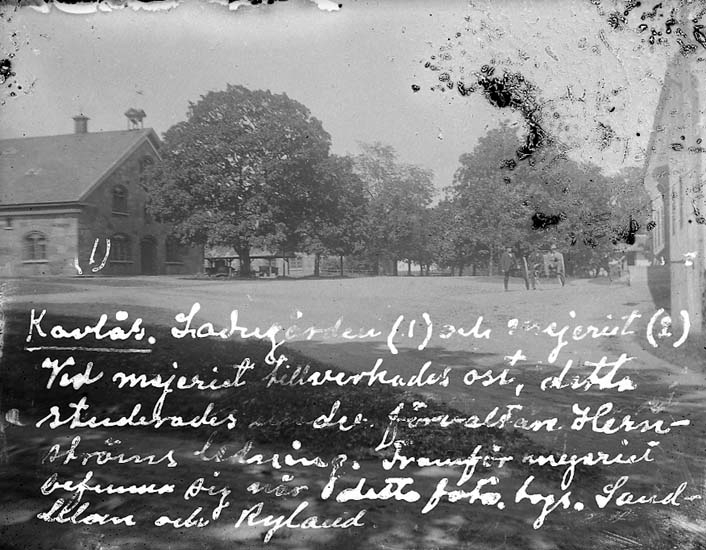 1)
Kavlås. Ladugården (1) och mejeriet (2)
Ved mejeriet tillverkades ost, detta
studerades under förvaltare Hern-
ströms ledning. Framför mejeriet
befinna sig när detta foto. togs. Sand-
blom och Ryland.